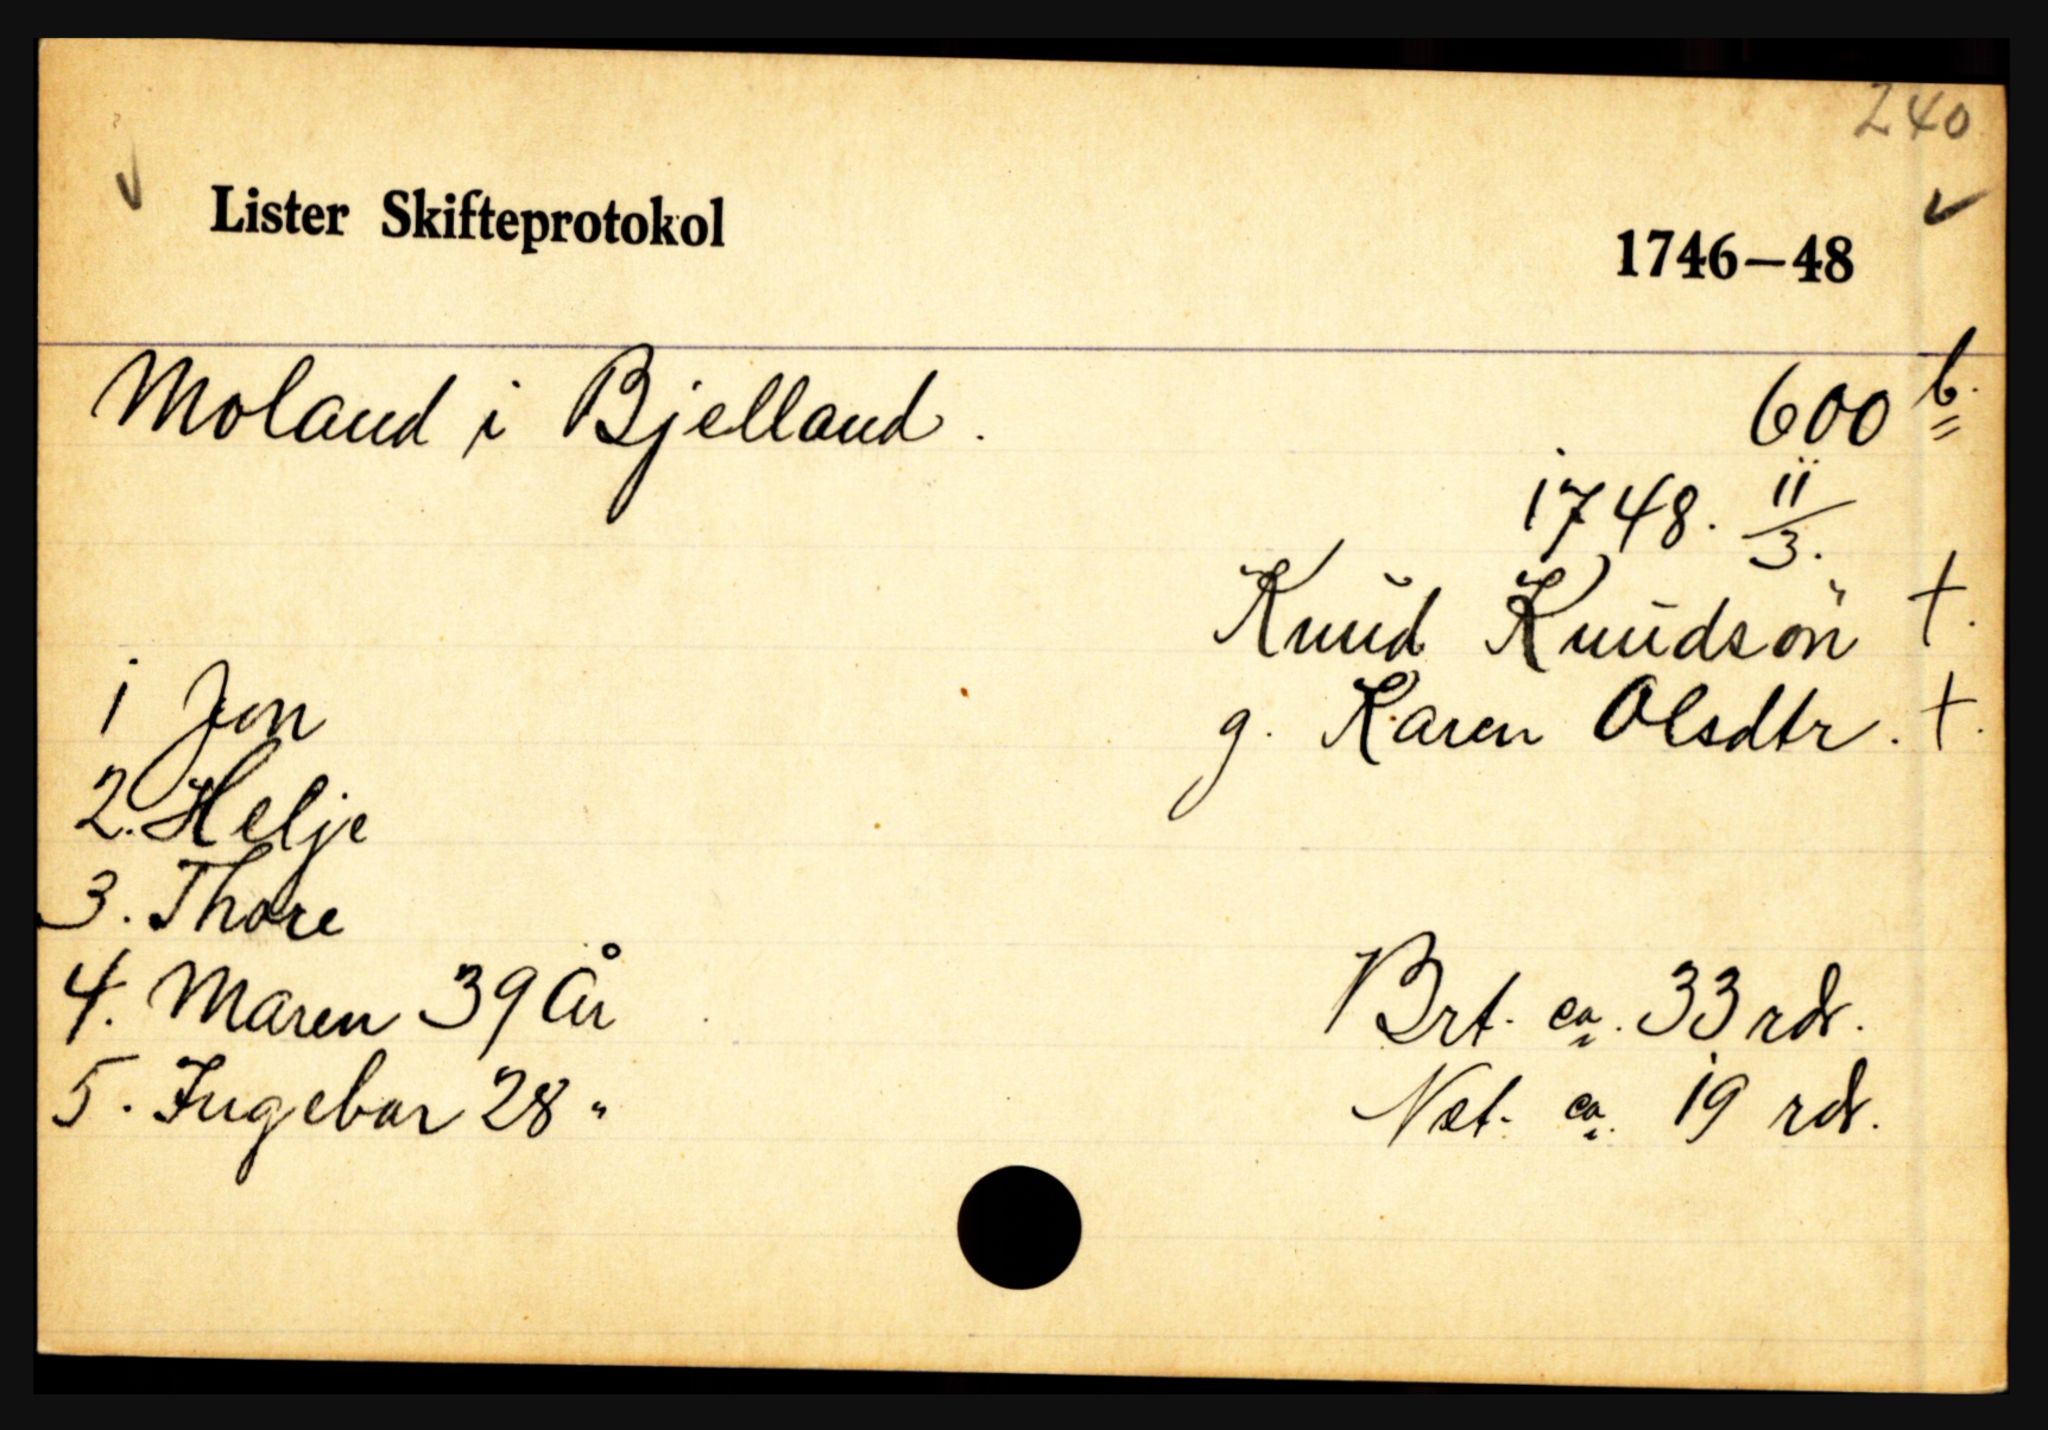 240
Lister Skifteprotokol 1746–48
Moland i Bjelland. 600 b.
1748. 11/3.
Knud Knudsön †.
1 Jon
g. Karen Olsdtr. †.
2. Helje
3. Thore
4. Maren 39 År
Brt. ca. 33 rdr.
5. Ingebor 28 "
Net. ca. 19 rdr.